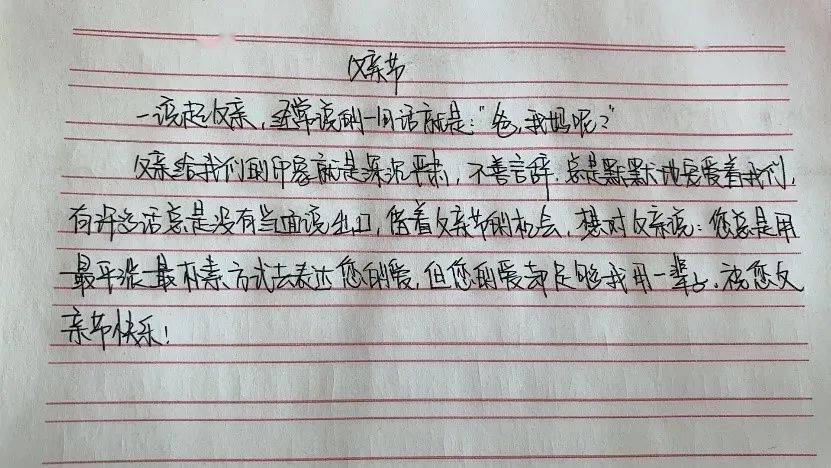 父亲节
一谈起父亲，经常说的一句话就是："爸，我妈呢？"
父亲给我们的印象就是深沉严肃，不善言辞。总是默默地关爱着我们，
有许多话总是没有当面说出口，借着父亲节的机会，想对父亲说：您总是用
最平淡最朴素方式去表达您的爱，但您的爱却足够我用一辈子。祝您父
亲节快乐！